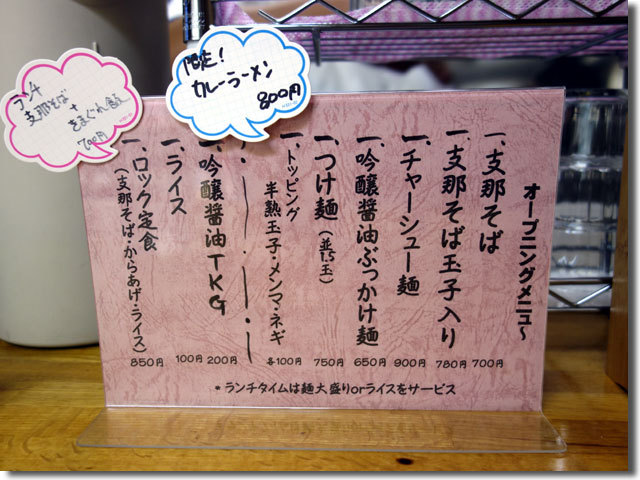 オープニングメニュ〜
一、支那そば 700円
一、支那そば玉子入り 780円
一、チャーシュー麺 900円
一、吟醸醤油ぶっかけ麺 650円
一、つけ麺(並1.5玉) 750円
一、トッピング
半熟玉子・メンマ・ネギ 各100円
一、吟醸醤油TKG 200円
一、ライス 100円
一、ロック定食
(支那そば・からあげ・ライス) 850円
*ランチタイムは麺大盛りorライスをサービス
限定!
カレーラーメン
800円
ランチ
支那そば
+
きまぐれ飯
700円